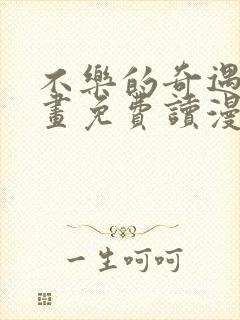 不樂的奇遇
畫免費讀漫
一生呵呵